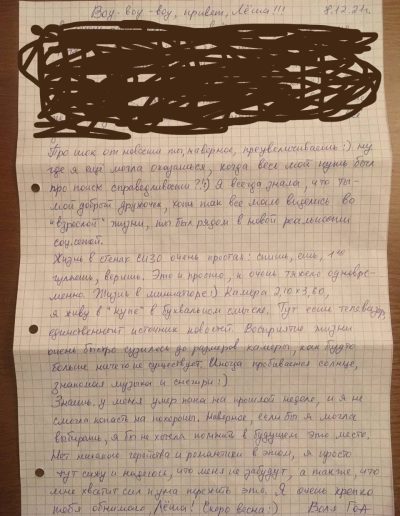 Вот-вот-вот, привет, Лёша!!! 8.12.21г.
Про шок от новости ты, наверное, преувеличиваешь :). Ну
где я ещё могла оказаться, когда весь мой путь был
про поиск справедливости?!:) Я всегда знала, что ты-
мой добрый дружочек, хотя так всё мало виделись во
"взрослой" жизни, ты был рядом в новой реальности
соц.сетей.
Жизнь в стенах СИЗО очень простая: спишь, ешь,
гуляешь, веришь. Это и просто, и очень тяжело одновре-
менно. Жизнь в миниатюре:) Камера 2,10 х 3,60,
я живу в "купе" в буквальном смысле. Тут есть телевизор,
единственный источник новостей. Восприятие жизни
очень быстро сузилось до размеров камеры, как будто
больше ничего не существует. Иногда пробивается солнце,
знакомая музыка и снегири:)
Знаешь, у меня умер папа на прошлой неделе, и я не
смогла попасть на похороны. Наверное, если бы я могла
выбирать, я бы не хотела помнить в будущем это место.
Нет никакого геройства и романтики в этом, я просто
тут сижу и надеюсь, что меня не забудут, а также, что
мне хватит сил и ума пережить это. Я очень крепко
тебя обнимаю, Лёша! Скоро весна:)